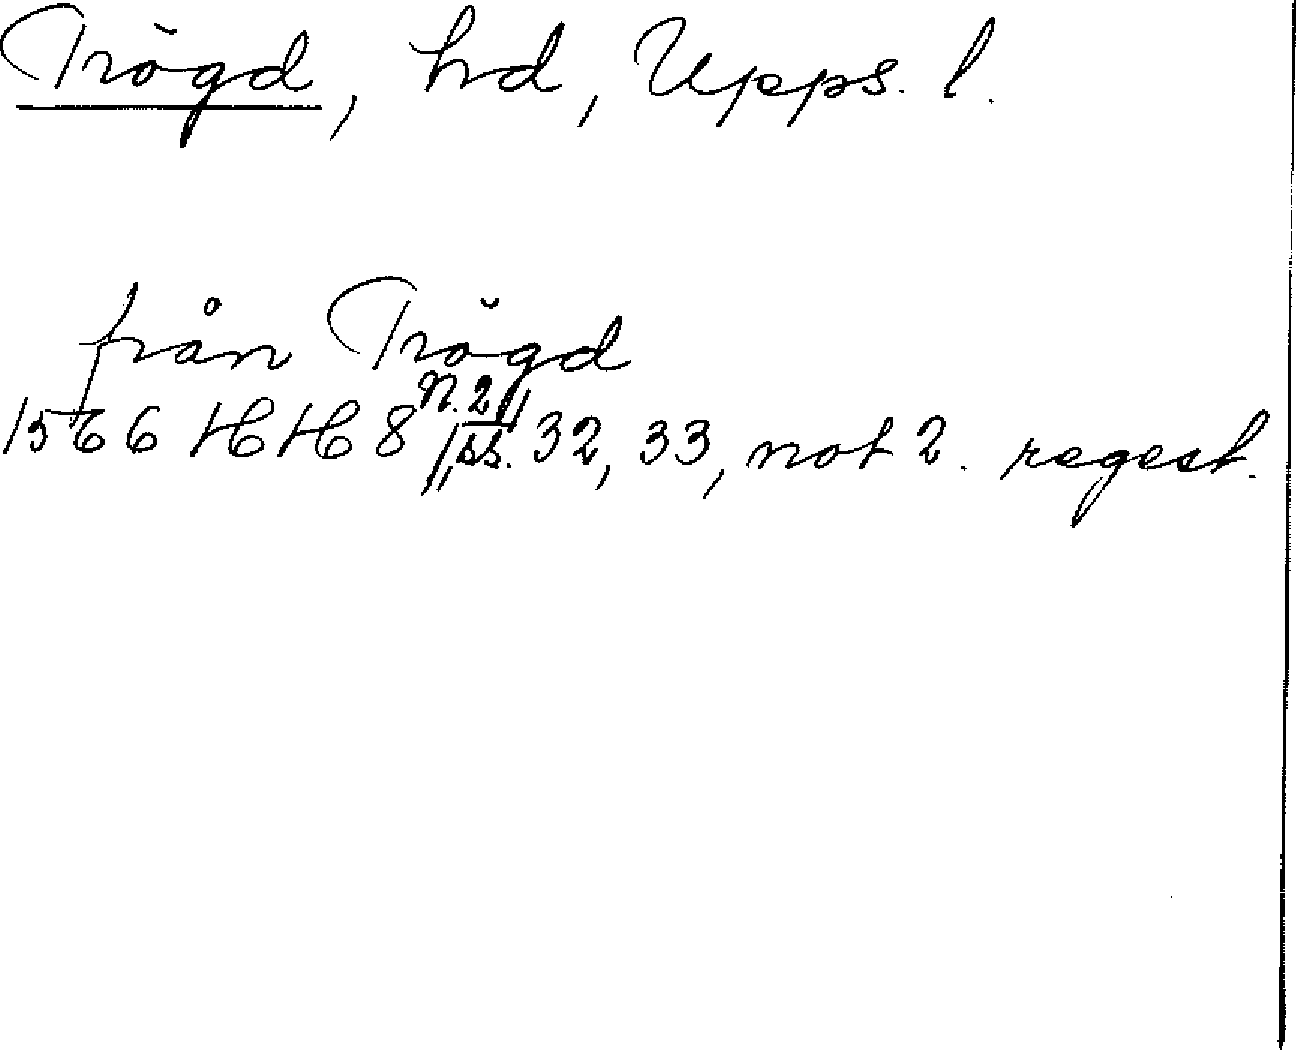 Trögd, hd, Upps. l.
från Trögd
1566 HH 8 N. 2 // ss. 32, 33, not 2. regest.